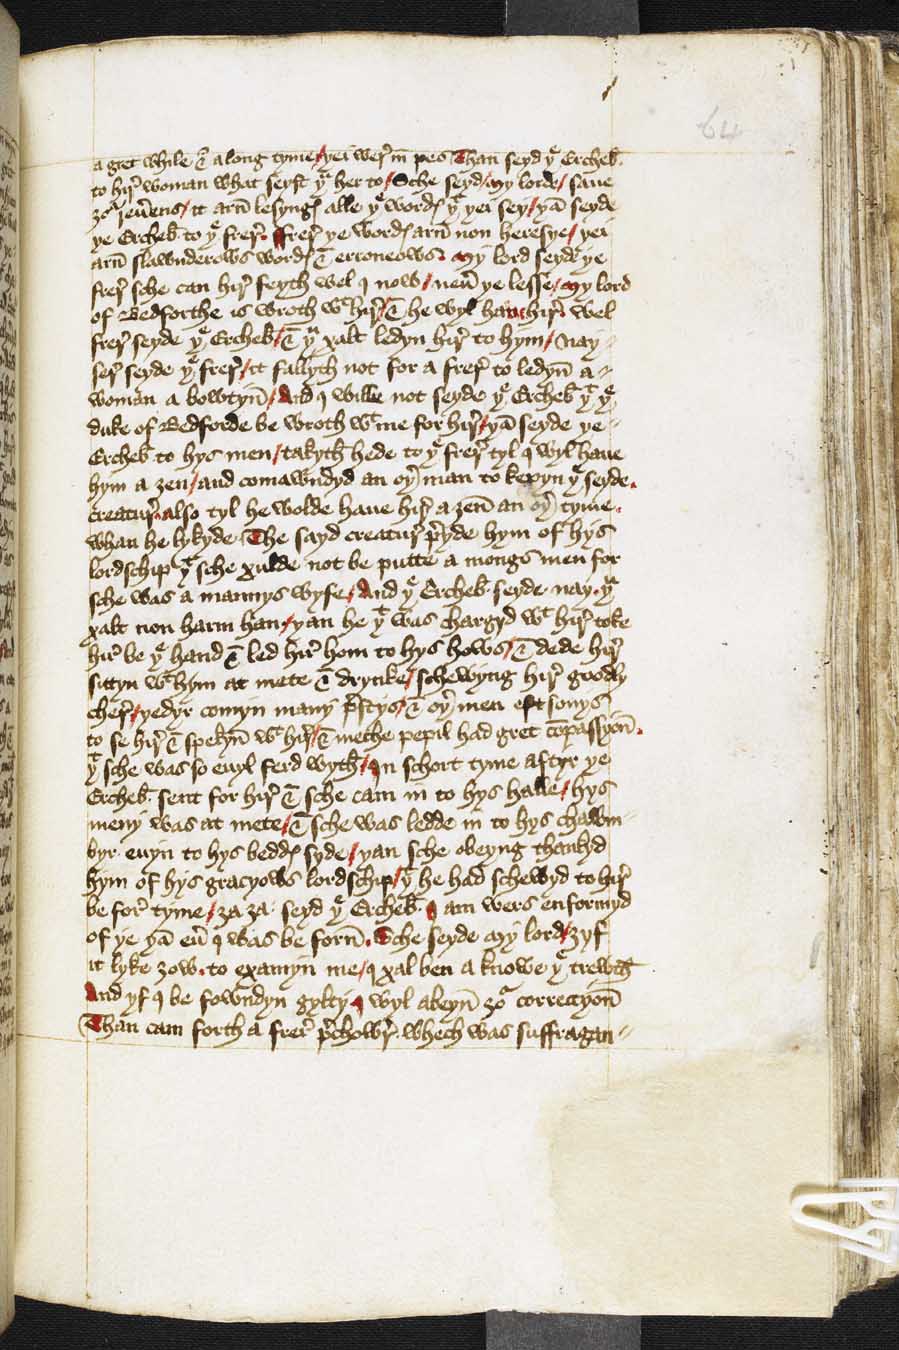 64
a gret while & a long tyme / yei wer in pes Than seyd yͤ Ercheb.
to hir woman what seyst yͧ her to / Sche seyd / my lorde / saue
ȝoͬ reuerens / it arn lesyngȝ alle yͤ wordȝ yͭ yei sey / yan seyde
ye Ercheb. to yͤ frer. frer ye wordȝ arn non heresye / yei
arn slawnderows wordȝ & erroneows. my lord seyde ye
frer sche can hir feyth wel i now / neuer ye lesse / my lord
of Bedforthe is wroth wͭ hir / & he wyl han hir. wel
frer seyde yͤ Ercheb. / & yͧ xalt ledyn hir to hym / Nay
ser seyde yͤ frer / it fallyth not for a frer to ledyn a
woman a bowtyn / And I wille not seyde yͤ Ercheb. yͭ yͤ
duke of Bedforde be wroth wͭ me for hir / yan seyde ye
Ercheb. to hys men / takyth hede to yͤ frer tyl I wyl haue
hym a ȝen / and comawndyd an oyr man to kepyn yͤ seyde
creatur. also tyl he wolde haue hir a ȝen an oyr tyme.
whan he lykyde. The sayd creatur preyde hym of hys
lordschip yͭ sche xulde not be putte a mongs men for
sche was a mannys wyfe / And yͤ Ercheb. seyde. nay. yͧ
xalt non harm han / yan he yͭ was chargyd wͭ hir toke
hir be yͤ hand & led hir hom to hys hows / & dede hir
sittyn wͭ hym at mete & drynke / schewyng hir goodly
cher / yedyr comyn many prstys / & oyr men eft sonys
to se hir & spekyn wͭ hir / & meche pepil had gret compassyon.
yͭ sche was so euyl ferd wyth / In schort tyme aftyr ye
Ercheb. sent for hir & sche cam in to hys halle / hys
meny was at mete / & sche was ledde in to hys chawm
byr. euyn to hys beddȝ syde / yan sche obeyng thankyd
hym of hys gracyows lordschip / yͭ he had schewyd to hir
be for tyme / ȝa ȝa. seyd yͤ Ercheb. I am wers enformyd
of ye yan euer I was be forn. Sche seyde my lord / ȝyf
it lyke ȝow. to examyn me / I xal ben a knowe yͤ trewth
And yf I be fowndyn gylty I wyl abeyn ȝoͬ correctyon
Than cam forth a frer prchowr. whech was suffragan